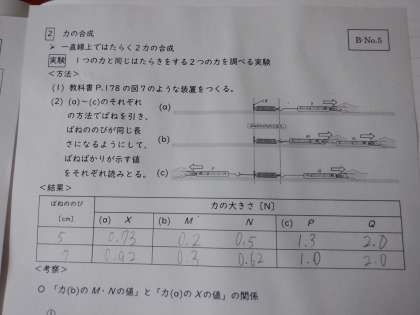 B-No.5
2 力の合成
➢ 一直線上ではたらく2力の合成
実験 1つの力と同じはたらきをする2つの力を調べる実験
<方法>
(1) 教科書P.178の図7のような装置をつくる。
(2) (a)~(c)のそれぞれ
の方法でばねを引き、
ばねののびが同じ長
さになるようにして、
ばねばかりが示す値
をそれぞれ読みとる。
(a)
(b)
(c)
<結果>
ばねののび [cm] 力の大きさ [N]
(a) X (b) M N (c) P Q
5 0.73 0.2 0.5 1.3 2.0
7 0.92 0.3 0.62 1.0 2.0
<考察>
○ 「力(b)のM・Nの値」と「力(a)のXの値」の関係